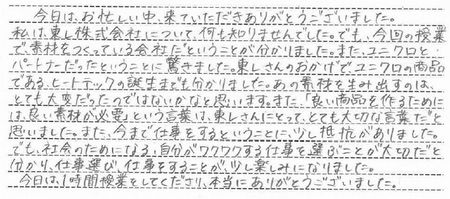 今日は、お忙しい中、来ていただきありがとうございました。
私は、東レ株式会社について、何も知りませんでした。でも、今回の授業
で、素材をつくっている会社だということが分かりました。また、ユニクロと
パートナーだったということに驚きました。東レさんのおかげで、ユニクロの商品
である、ヒートテックの誕生までも分かりました。あの素材を生み出すのは、
とても大変だったのではないかなと思います。また、「良い商品を作るために
は、良い素材が必要」という言葉は、東レさんにとって、とても大切な言葉だと
思いました。また、今まで仕事をするということに、少し抵抗がありました。
でも、社会のためになる、自分がワクワクする仕事を選ぶことが大切だと
分かり、仕事選び、仕事をすることが、少し楽しみになりました。
今日は、1時間授業をしてくださり、本当にありがとうございました。